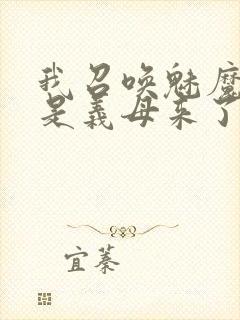 我召唤魅魔
是义母来了
宜蓁